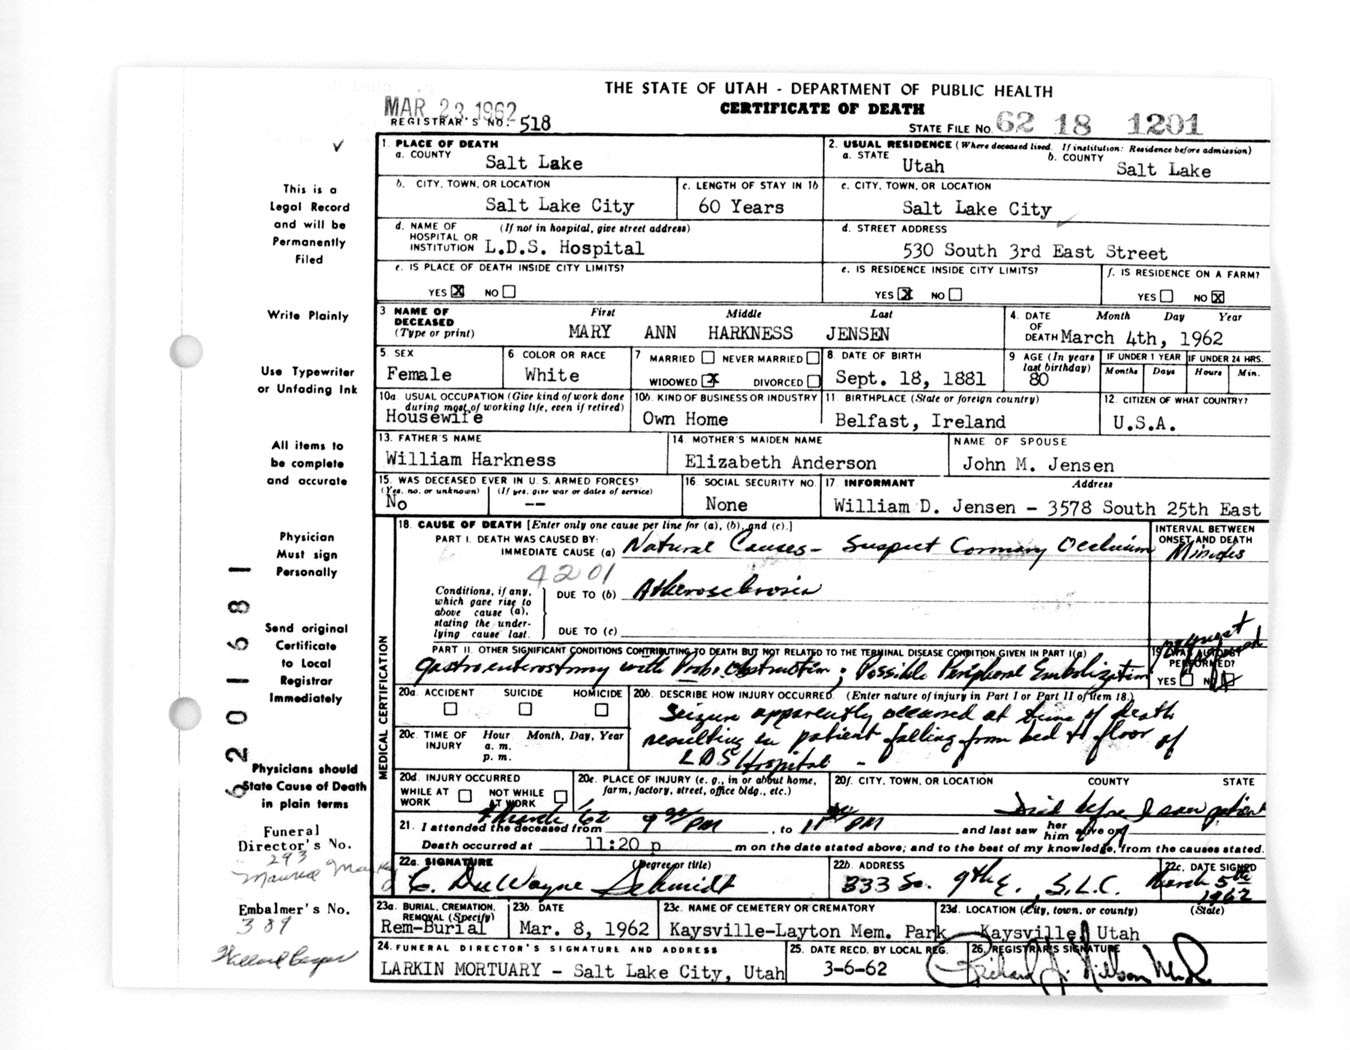 THE STATE OF UTAH - DEPARTMENT OF PUBLIC HEALTH
CERTIFICATE OF DEATH
MAR 23 1962
REGISTRAR'S NO. 518
STATE FILE NO. 62 18 1201
This is a
Legal Record
and will be
Permanently
Filed
Write Plainly
Use Typewriter
or Unfading Ink
All items to
be complete
and accurate
Physician
Must sign
Personally
Send original
Certificate
to Local
Registrar
Immediately
Physicians should
State Cause of Death
in plain terms
Funeral
Director's No.
293
Maurice
Embalmer's No.
389
6201681
1. PLACE OF DEATH
a. COUNTY Salt Lake
2. USUAL RESIDENCE (Where deceased lived. If institution: Residence before admission)
a. STATE Utah b. COUNTY Salt Lake
b. CITY, TOWN, OR LOCATION Salt Lake City
c. LENGTH OF STAY IN 1b 60 Years
c. CITY, TOWN, OR LOCATION Salt Lake City
d. NAME OF HOSPITAL OR INSTITUTION (If not in hospital, give street address) L.D.S. Hospital
d. STREET ADDRESS 530 South 3rd East Street
e. IS PLACE OF DEATH INSIDE CITY LIMITS? YES X NO
e. IS RESIDENCE INSIDE CITY LIMITS? YES X NO
f. IS RESIDENCE ON A FARM? YES NO X
3. NAME OF DECEASED (Type or print) First Middle Last
MARY ANN HARKNESS JENSEN
4. DATE OF DEATH Month Day Year March 4th, 1962
5. SEX Female
6 COLOR OR RACE White
7 MARRIED NEVER MARRIED WIDOWED X DIVORCED
8. DATE OF BIRTH Sept. 18, 1881
9 AGE (In years last birthday) 80
IF UNDER 1 YEAR Months Days
IF UNDER 24 HRS. Hours Min.
10a. USUAL OCCUPATION (Give kind of work done during most of working life, even if retired) Housewife
10b. KIND OF BUSINESS OR INDUSTRY Own Home
11. BIRTHPLACE (State or foreign country) Belfast, Ireland
12. CITIZEN OF WHAT COUNTRY? U.S.A.
13. FATHER'S NAME William Harkness
14. MOTHER'S MAIDEN NAME Elizabeth Anderson
NAME OF SPOUSE John M. Jensen
15. WAS DECEASED EVER IN U. S. ARMED FORCES? (Yes, no, or unknown) (If yes, give war or dates of service) No --
16 SOCIAL SECURITY NO. None
17 INFORMANT Address William D. Jensen - 3578 South 25th East
MEDICAL CERTIFICATION
18. CAUSE OF DEATH [Enter only one cause per line for (a), (b), and (c).]
INTERVAL BETWEEN ONSET AND DEATH
PART I. DEATH WAS CAUSED BY:
IMMEDIATE CAUSE (a) Natural Causes - Suspect Coronary Occlusion Minutes
4201
Conditions, if any, which gave rise to above cause (a), stating the underlying cause last.
DUE TO (b) Atherosclerosis
DUE TO (c)
PART II. OTHER SIGNIFICANT CONDITIONS CONTRIBUTING TO DEATH BUT NOT RELATED TO THE TERMINAL DISEASE CONDITION GIVEN IN PART I(a)
Gastroenterostomy with Prob. Obstruction; Possible Peripheral Embolization
19. WAS AUTOPSY PERFORMED? YES NO
20a. ACCIDENT SUICIDE HOMICIDE
20b. DESCRIBE HOW INJURY OCCURRED. (Enter nature of injury in Part I or Part II of item 18.)
Seizure apparently occurred at time of death
resulting in patient falling from bed to floor of
LDS Hospital -
20c. TIME OF INJURY Hour Month, Day, Year
a. m.
p. m.
20d. INJURY OCCURRED WHILE AT WORK NOT WHILE AT WORK
20e. PLACE OF INJURY (e. g., in or about home, farm, factory, street, office bldg., etc.)
20f. CITY, TOWN, OR LOCATION COUNTY STATE
Died before I saw patient
21. I attended the deceased from 4 March '62 9 PM, to 11 PM and last saw her him alive on
Death occurred at 11:20 p m on the date stated above; and to the best of my knowledge, from the causes stated.
22a. SIGNATURE (Degree or title) C. DuWayne Schmidt
22b. ADDRESS 333 So. 9th E., S.L.C.
22c. DATE SIGNED March 5th 1962
23a. BURIAL, CREMATION, REMOVAL (Specify) Rem-Burial
23b. DATE Mar. 8, 1962
23c. NAME OF CEMETERY OR CREMATORY Kaysville-Layton Mem. Park
23d. LOCATION (City, town, or county) (State) Kaysville, Utah
24. FUNERAL DIRECTOR'S SIGNATURE AND ADDRESS
LARKIN MORTUARY - Salt Lake City, Utah
25. DATE RECD. BY LOCAL REG. 3-6-62
26. REGISTRAR'S SIGNATURE